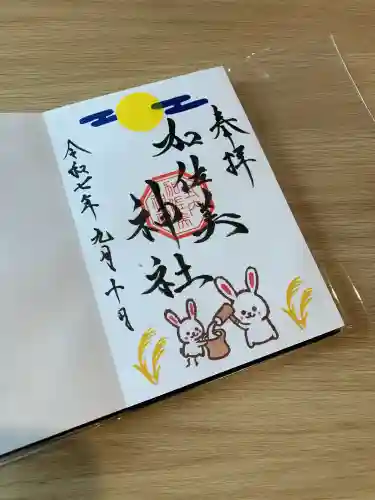 奉拝
加佐美
神社
令和七年 九月 十日